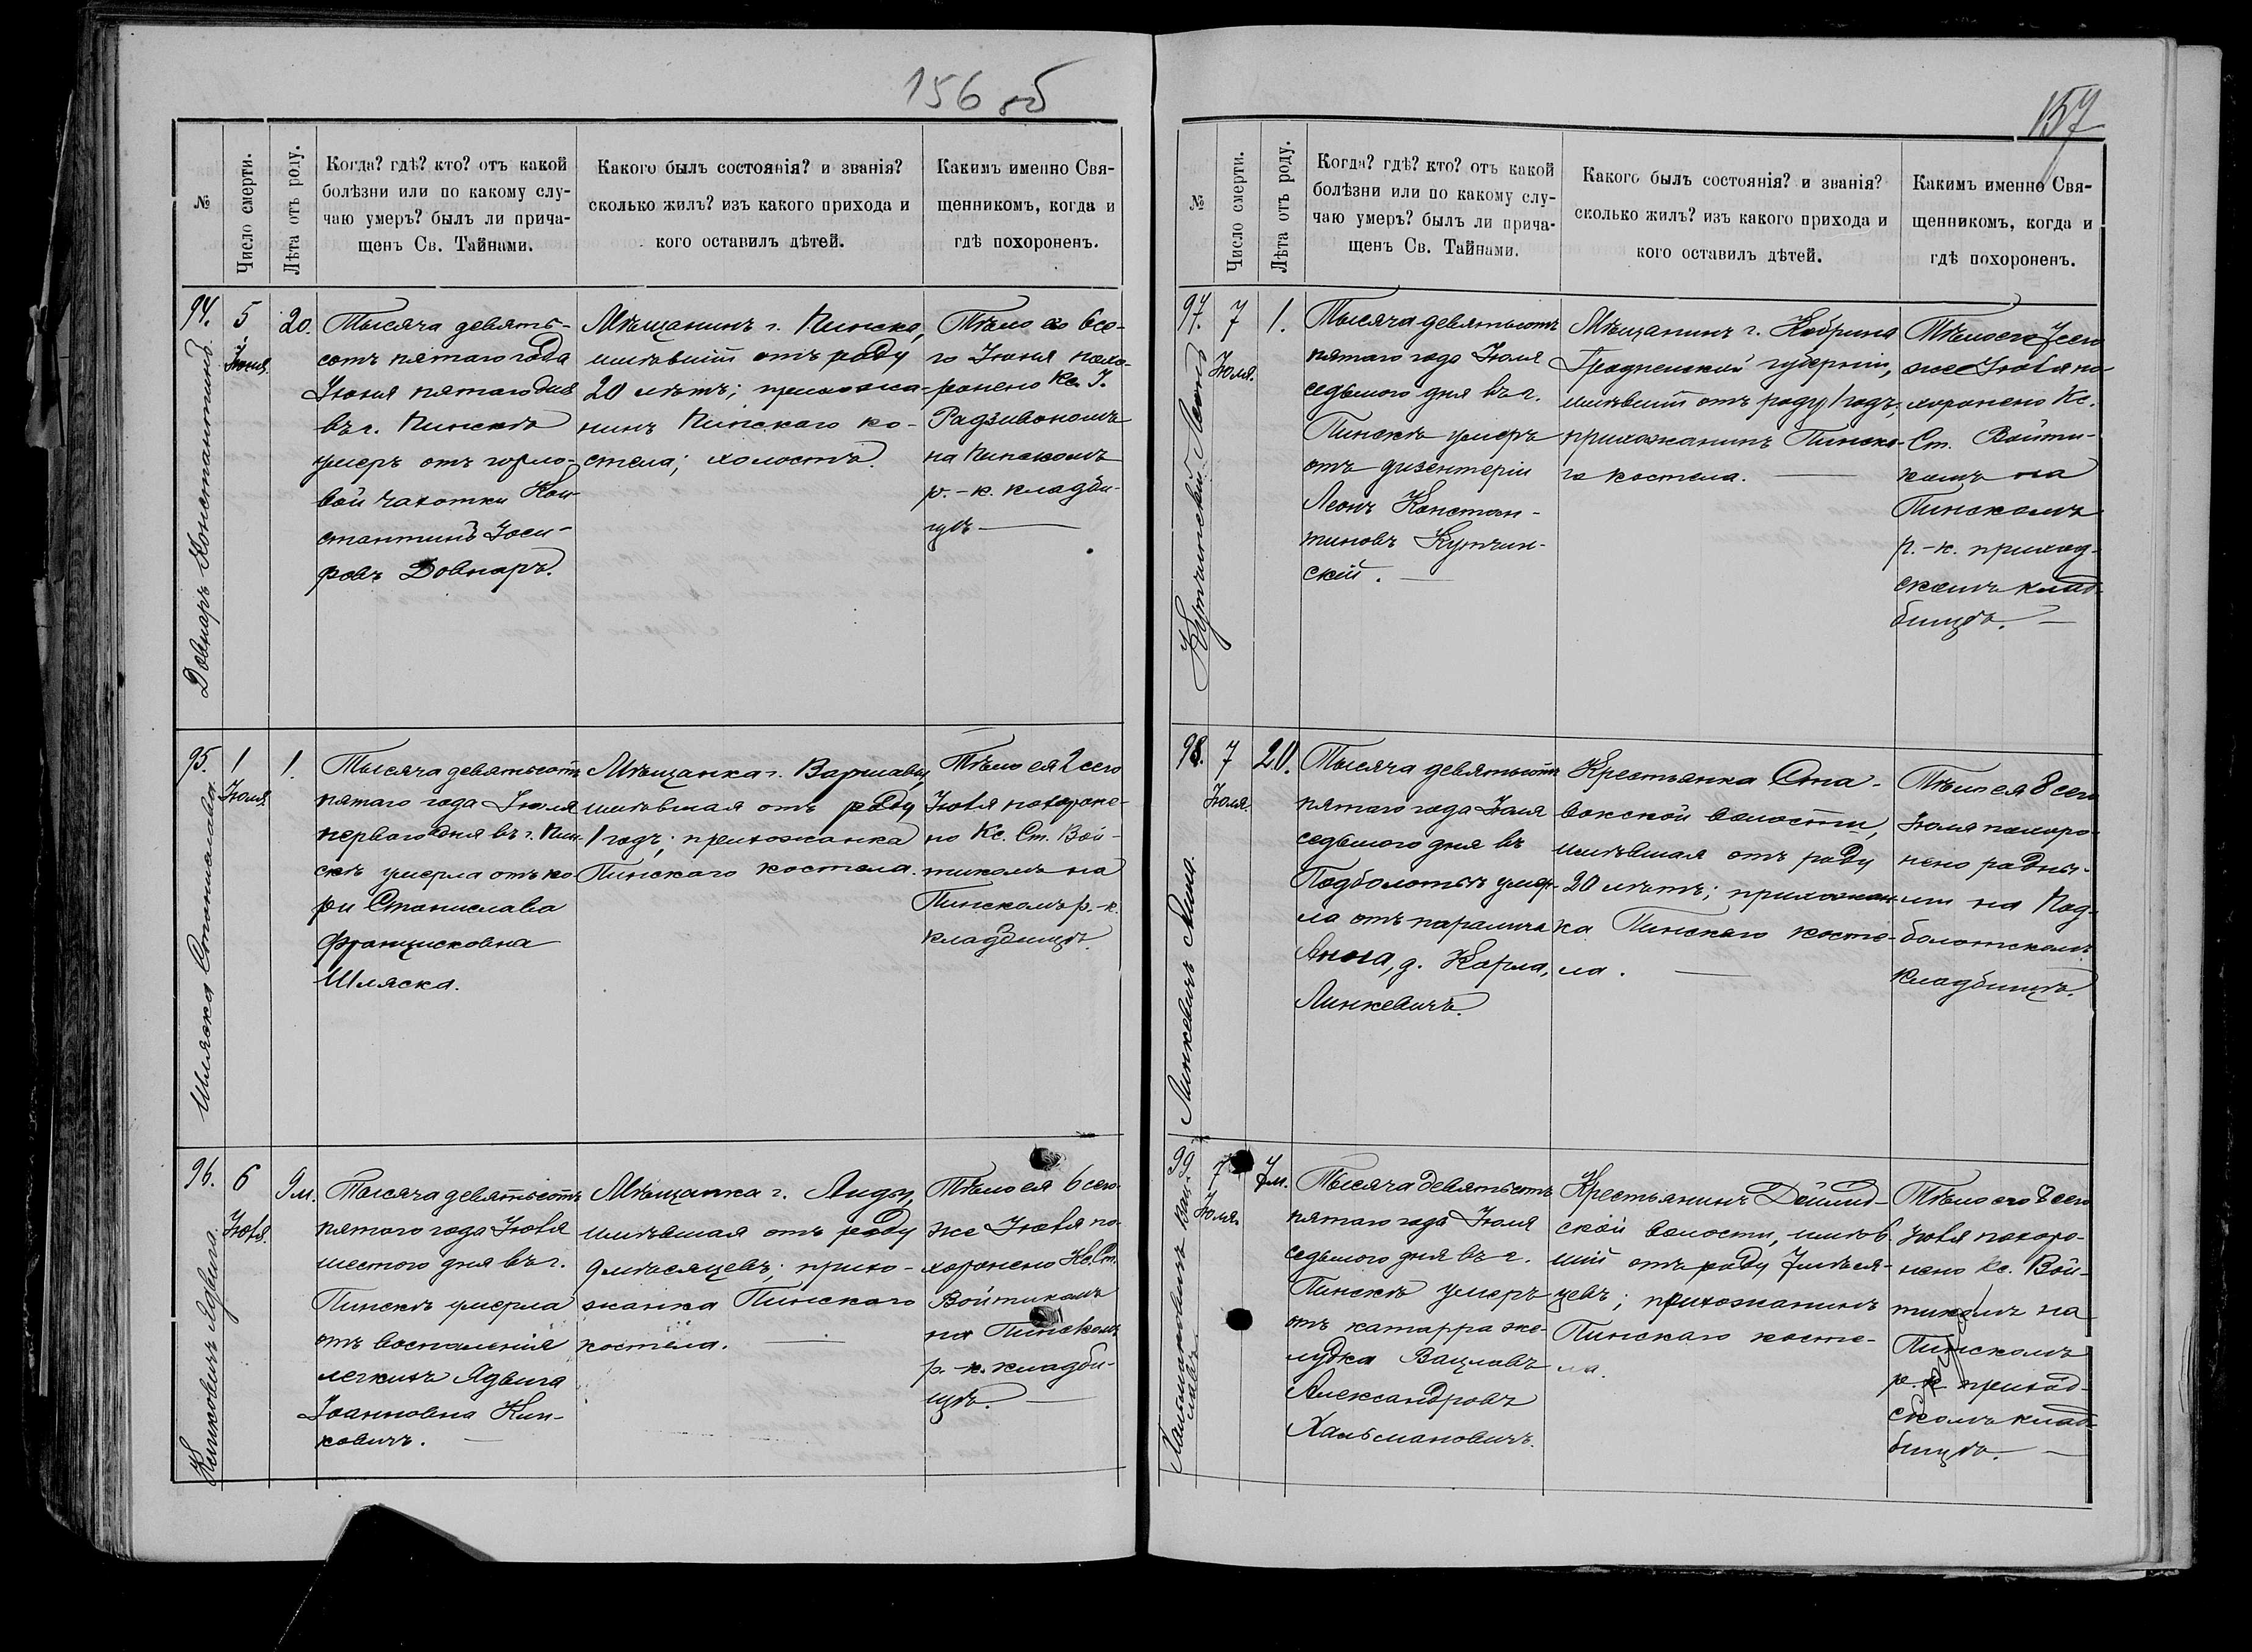 156 об
№
Число смерти.
Лѣта отъ роду.
Когда? гдѣ? кто? отъ какой
болѣзни или по какому слу-
чаю умеръ? былъ ли прича-
щенъ Св. Тайнами.
Какого былъ состоянія? и званія?
сколько жилъ? изъ какого прихода и
кого оставилъ дѣтей.
Какимъ именно Свя-
щенникомъ, когда и
гдѣ похороненъ.
94.
Довнаръ Константинъ.
5
Іюня.
20.
Тысяча девять-
сотъ пятаго года
Іюня пятаго дня
въ г. Пинскѣ
умеръ отъ горло-
вой чахотки Кон-
стантинъ Іоси-
фовъ Довнаръ.
Мѣщанинъ г. Пинска,
имѣвшій отъ роду
20 лѣтъ; прихожа-
нинъ Пинскаго ко-
стела; холостъ.
Тѣло его 6 се-
го Іюня похо-
ронено Кс. І.
Радзивономъ
на Пинскомъ
р.-к. кладби-
щѣ
95.
Шляска Станислава.
1
Іюля.
1.
Тысяча девятьсотъ
пятаго года Іюля
перваго дня въ г. Пин-
скѣ умерла отъ ко-
ри Станислава
Францисковна
Шляска.
Мѣщанка г. Варшавы,
имѣвшая отъ роду
1 годъ; прихожанка
Пинскаго костела.
Тѣло ея 2 сего
Іюля похороне-
но Кс. Ст. Вой-
тикомъ на
Пинскомъ р.-к.
кладбищѣ.
96.
Кинковичъ Ядвига.
6
Іюля.
9 м.
Тысяча девятьсотъ
пятаго года Іюля
шестого дня въ г.
Пинскѣ умерла
отъ воспаленія
легкихъ Ядвига
Іоанновна Кин-
ковичъ.
Мѣщанка г. Лиды,
имѣвшая отъ роду
9 мѣсяцевъ; прихо-
жанка Пинскаго
костела.
Тѣло ея 6 сего
же Іюля по-
хоронено Кс. Ст.
Войтикомъ
на Пинскомъ
р.-к. кладби-
щѣ.
157
№
Число смерти.
Лѣта отъ роду.
Когда? гдѣ? кто? отъ какой
болѣзни или по какому слу-
чаю умеръ? былъ ли прича-
щенъ Св. Тайнами.
Какого былъ состоянія? и званія?
сколько жилъ? изъ какого прихода и
кого оставилъ дѣтей.
Какимъ именно Свя-
щенникомъ, когда и
гдѣ похороненъ.
97.
Купчинскій Леонъ
7
Іюля.
1.
Тысяча девятьсотъ
пятаго года Іюля
седьмого дня въ г.
Пинскѣ умеръ
отъ дизентеріи
Леонъ Констан-
тиновъ Купчин-
скій.
Мѣщанинъ г. Кобрина
Гродненской губерніи,
имѣвшій отъ роду 1 годъ;
прихожанинъ Пинска-
го костела.
Тѣло его 7 сего
же Іюля по-
хоронено Кс.
Ст. Войти-
комъ на
Пинскомъ
р.-к. приход-
скомъ клад-
бищѣ.
98.
Линкевичъ Анна.
7
Іюля.
20.
Тысяча девятьсотъ
пятаго года Іюля
седьмого дня въ
Подболотьѣ умер-
ла отъ паралича
Анна, д. Карла,
Линкевичъ.
Крестьянка Ста-
вокской волости,
имѣвшая отъ роду
20 лѣтъ; прихожан-
ка Пинскаго косте-
ла.
Тѣло ея 8 сего
Іюля похоро-
нено родны-
ми на Под-
болотскомъ
кладбищѣ.
99.
Хальмановичъ Вац-
лавъ
7
Іюля.
7 м.
Тысяча девятьсотъ
пятаго года Іюля
седьмого дня въ г.
Пинскѣ умеръ
отъ катарра же-
лудка Вацлавъ
Александровъ
Хальмановичъ.
Крестьянинъ
ской волости, имѣв-
шій отъ роду 7 мѣся-
цевъ; прихожанинъ
Пинскаго косте-
ла.
Тѣло его 8 сего
Іюля похоро-
нено Кс. Вой-
тикомъ на
Пинскомъ
р.-к. приход-
скомъ клад-
бищѣ.